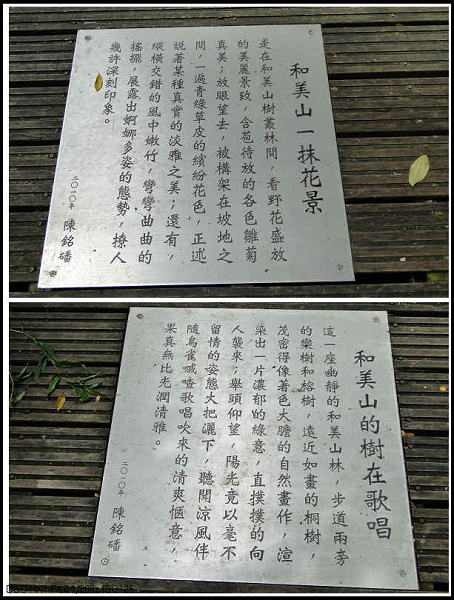 和美山一抹花景
走在和美山樹叢林間，看野花盛放
的美麗景致，含苞待放的各色雛菊
真美；放眼望去，被構架在坡地之
間，一遍青綠草皮的繽紛花色，正述
說著某種真實的淡雅之美；還有，
縱橫交錯的風中嫩竹，彎彎曲曲的
搖擺，展露出婀娜多姿的態勢，撩人
幾許深刻印象。
二○一○年 陳銘磻
和美山的樹在歌唱
這一座幽靜的和美山林，步道兩旁
的欒樹和榕樹，遠近如畫的桐樹，
茂密得像著色大膽的自然畫作，渲
染出一片濃郁的綠意，直撲撲的向
人襲來；舉頭仰望，陽光竟以毫不
留情的姿態大把灑下，聽聞涼風伴
隨鳥雀喊喳歌唱吹來的清爽愜意，
果真無比光潤清雅。
二○一○年 陳銘磻